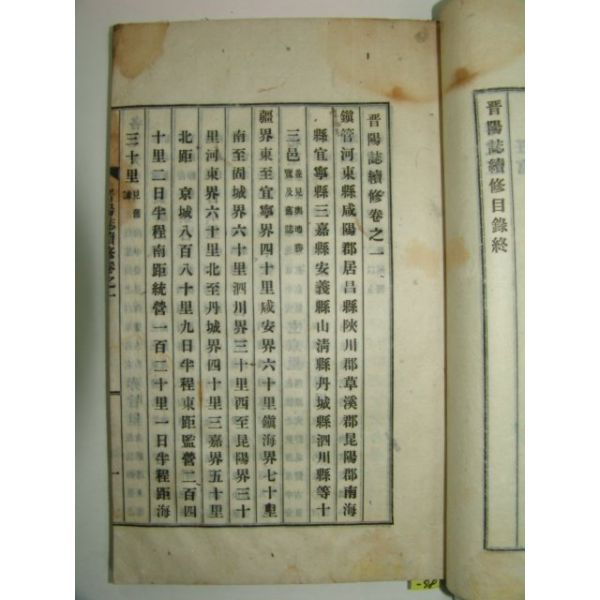 晋陽誌續修目錄終
晋陽誌續修卷之一
鎭管河東縣咸陽郡居昌縣陜川郡草溪郡昆陽郡南海
縣宜寧縣三嘉縣安義縣山淸縣丹城縣泗川縣等十
三邑並見輿地勝覽及舊誌
疆界東至宜寧界四十里咸安界六十里鎭海界七十里
南至固城界六十里泗川界三十里西至昆陽界三十
里河東界六十里北至丹城界四十里三嘉界五十里
北距 京城八百八十里九日半程東距監營二百四
十里二日半程南距統營一百二十里一日半程距海
三十里見舊誌
晋陽誌續修卷之一
一
-98